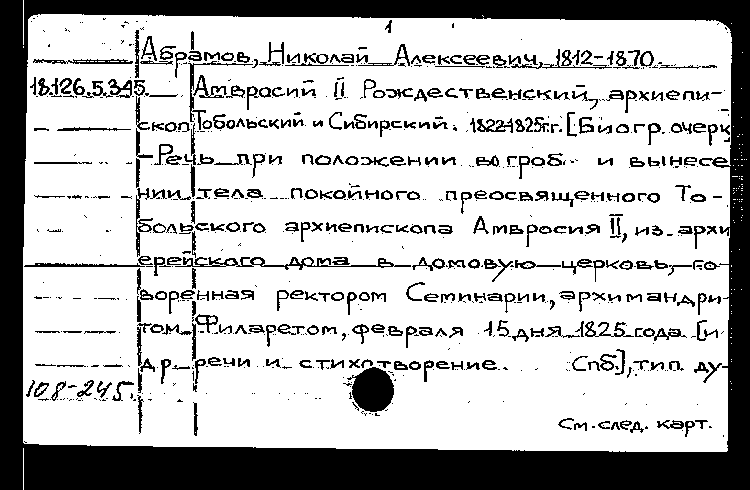 1
Абрамов, Николай Алексеевич, 1812-1870.
18.126.5.345. Амвросий II Рождественский, архиепи-
скоп Тобольский и Сибирский. 1822-1825 г.г. [Биогр. очерк]
-Речь при положении во гроб и вынесе
нии тела покойного преосвященного То-
больского архиепископа Амвросия II, из архи
ерейского дома в домовую церковь, го-
воренная ректором Семинарии, архимандри-
том Филаретом, февраля 15 дня 1825 года [и
др. речи и стихотворение. Спб.], тип. ду-
108-245.
См. след. карт.